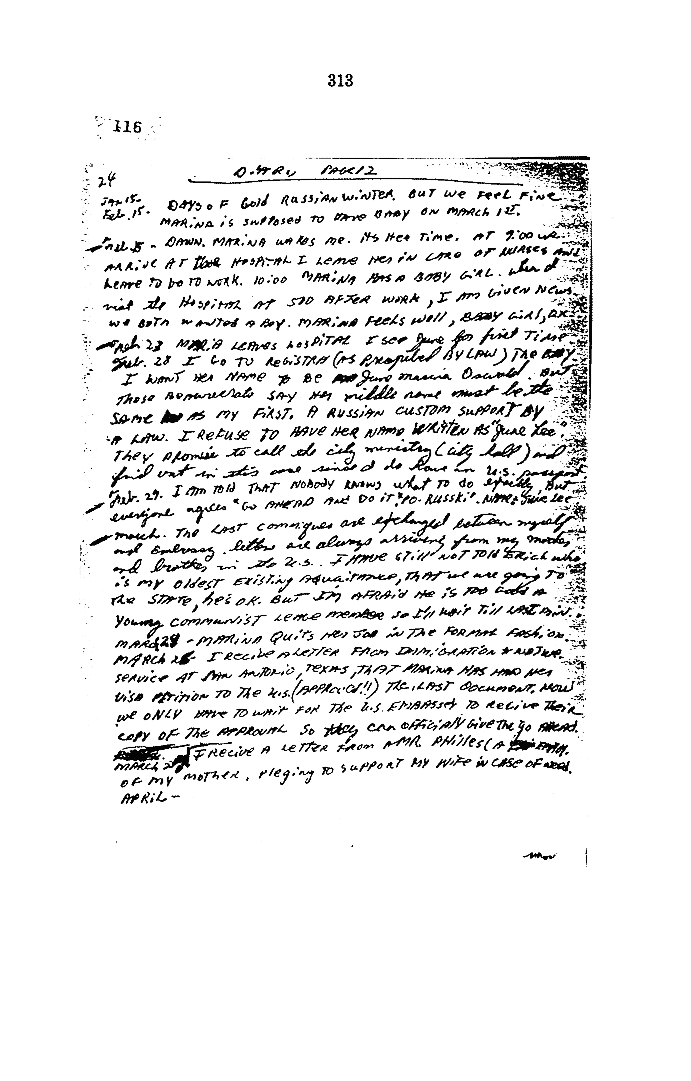 313
116
24 DIARY PAGE 12
JAN 15-
Feb. 15. DAYS OF Cold RUSSIAN WINTER. BUT WE FEEL FINE
MARINA is SUPPOSED TO HAVE BABY ON MARCH 1st.
DAWN. MARINA WAKES ME. Its Her Time. AT 9:00 we
ARRIVE AT THE HOSPITAL I LEAVE HER IN CARE OF NURSES AND
LEAVE TO GO TO WORK. 10:00 MARINA HAS A BABY GIRL. When I
visit the HOSPITAL AT 500 AFTER WORK, I AM GIVEN NEWS.
WE BOTH WANTED A BOY. MARINA FEELS WELL, BABY GIRL, O.K.
Feb. 23 MARINA LEAVES HOSPITAL I see June for first Time
Feb. 28 I GO TO REGISTRA (AS PROSCRIBED BY LAW) THE BABY
I WANT HER NAME TO BE June Marina Oswald. But
those Beaurucrats SAY Her middle name must be the
SAME AS MY FIRST. A RUSSIAN CUSTOM SUPPORT BY
A LAW. I REFUSE TO HAVE HER NAME WRITTEN AS "June Lee".
They PROMISE to call the city ministry (city hall) and
find out in this case since I do have an U.S. passport
Feb. 29. I AM TOLD THAT NOBODY KNOWS what TO do exactly, but
everyone agrees "GO AHEAD AND DO IT, "PO-RUSSKI". NAME: June Lee
March. The LAST commuques are exchanged between myself
and Embassy. letters are always arriving from my mother
and brother in the U.S. I HAVE STILL NOT TOLD ERICH who
is MY OLDEST EXISTING Aquaintance, THAT we are going TO
the STATE, he's O.K. BUT I'M AFRAID HE IS TOO GOOD A
YOUNG COMMUNIST LEAGE member SO I'll WAIT TILL LAST MIN.
MARCH 24 - MARINA QUITS HER JOB IN THE FORMAL FASHION.
MARCH 26 I RECIVE A LETTER FROM IMMIGRATION & NATUR.
SERVICE AT SAN ANTONIO, TEXAS, THAT MARINA HAS HAD HER
VISA PETITION TO THE U.S. (APPROVED!!) THE LAST DOCUMENT. NOW
WE ONLY HAVE TO WAIT FOR THE U.S. EMBASSY TO RECIVE THEIR
COPY OF THE APPROVAL SO they can OFFICIALLY GIVE THE GO AHEAD.
MARCH 27 I RECIVE A LETTER FROM A MR. PHILLIES (A
OF MY MOTHER, pleging TO SUPPORT MY WIFE IN CASE OF need.
APRIL -